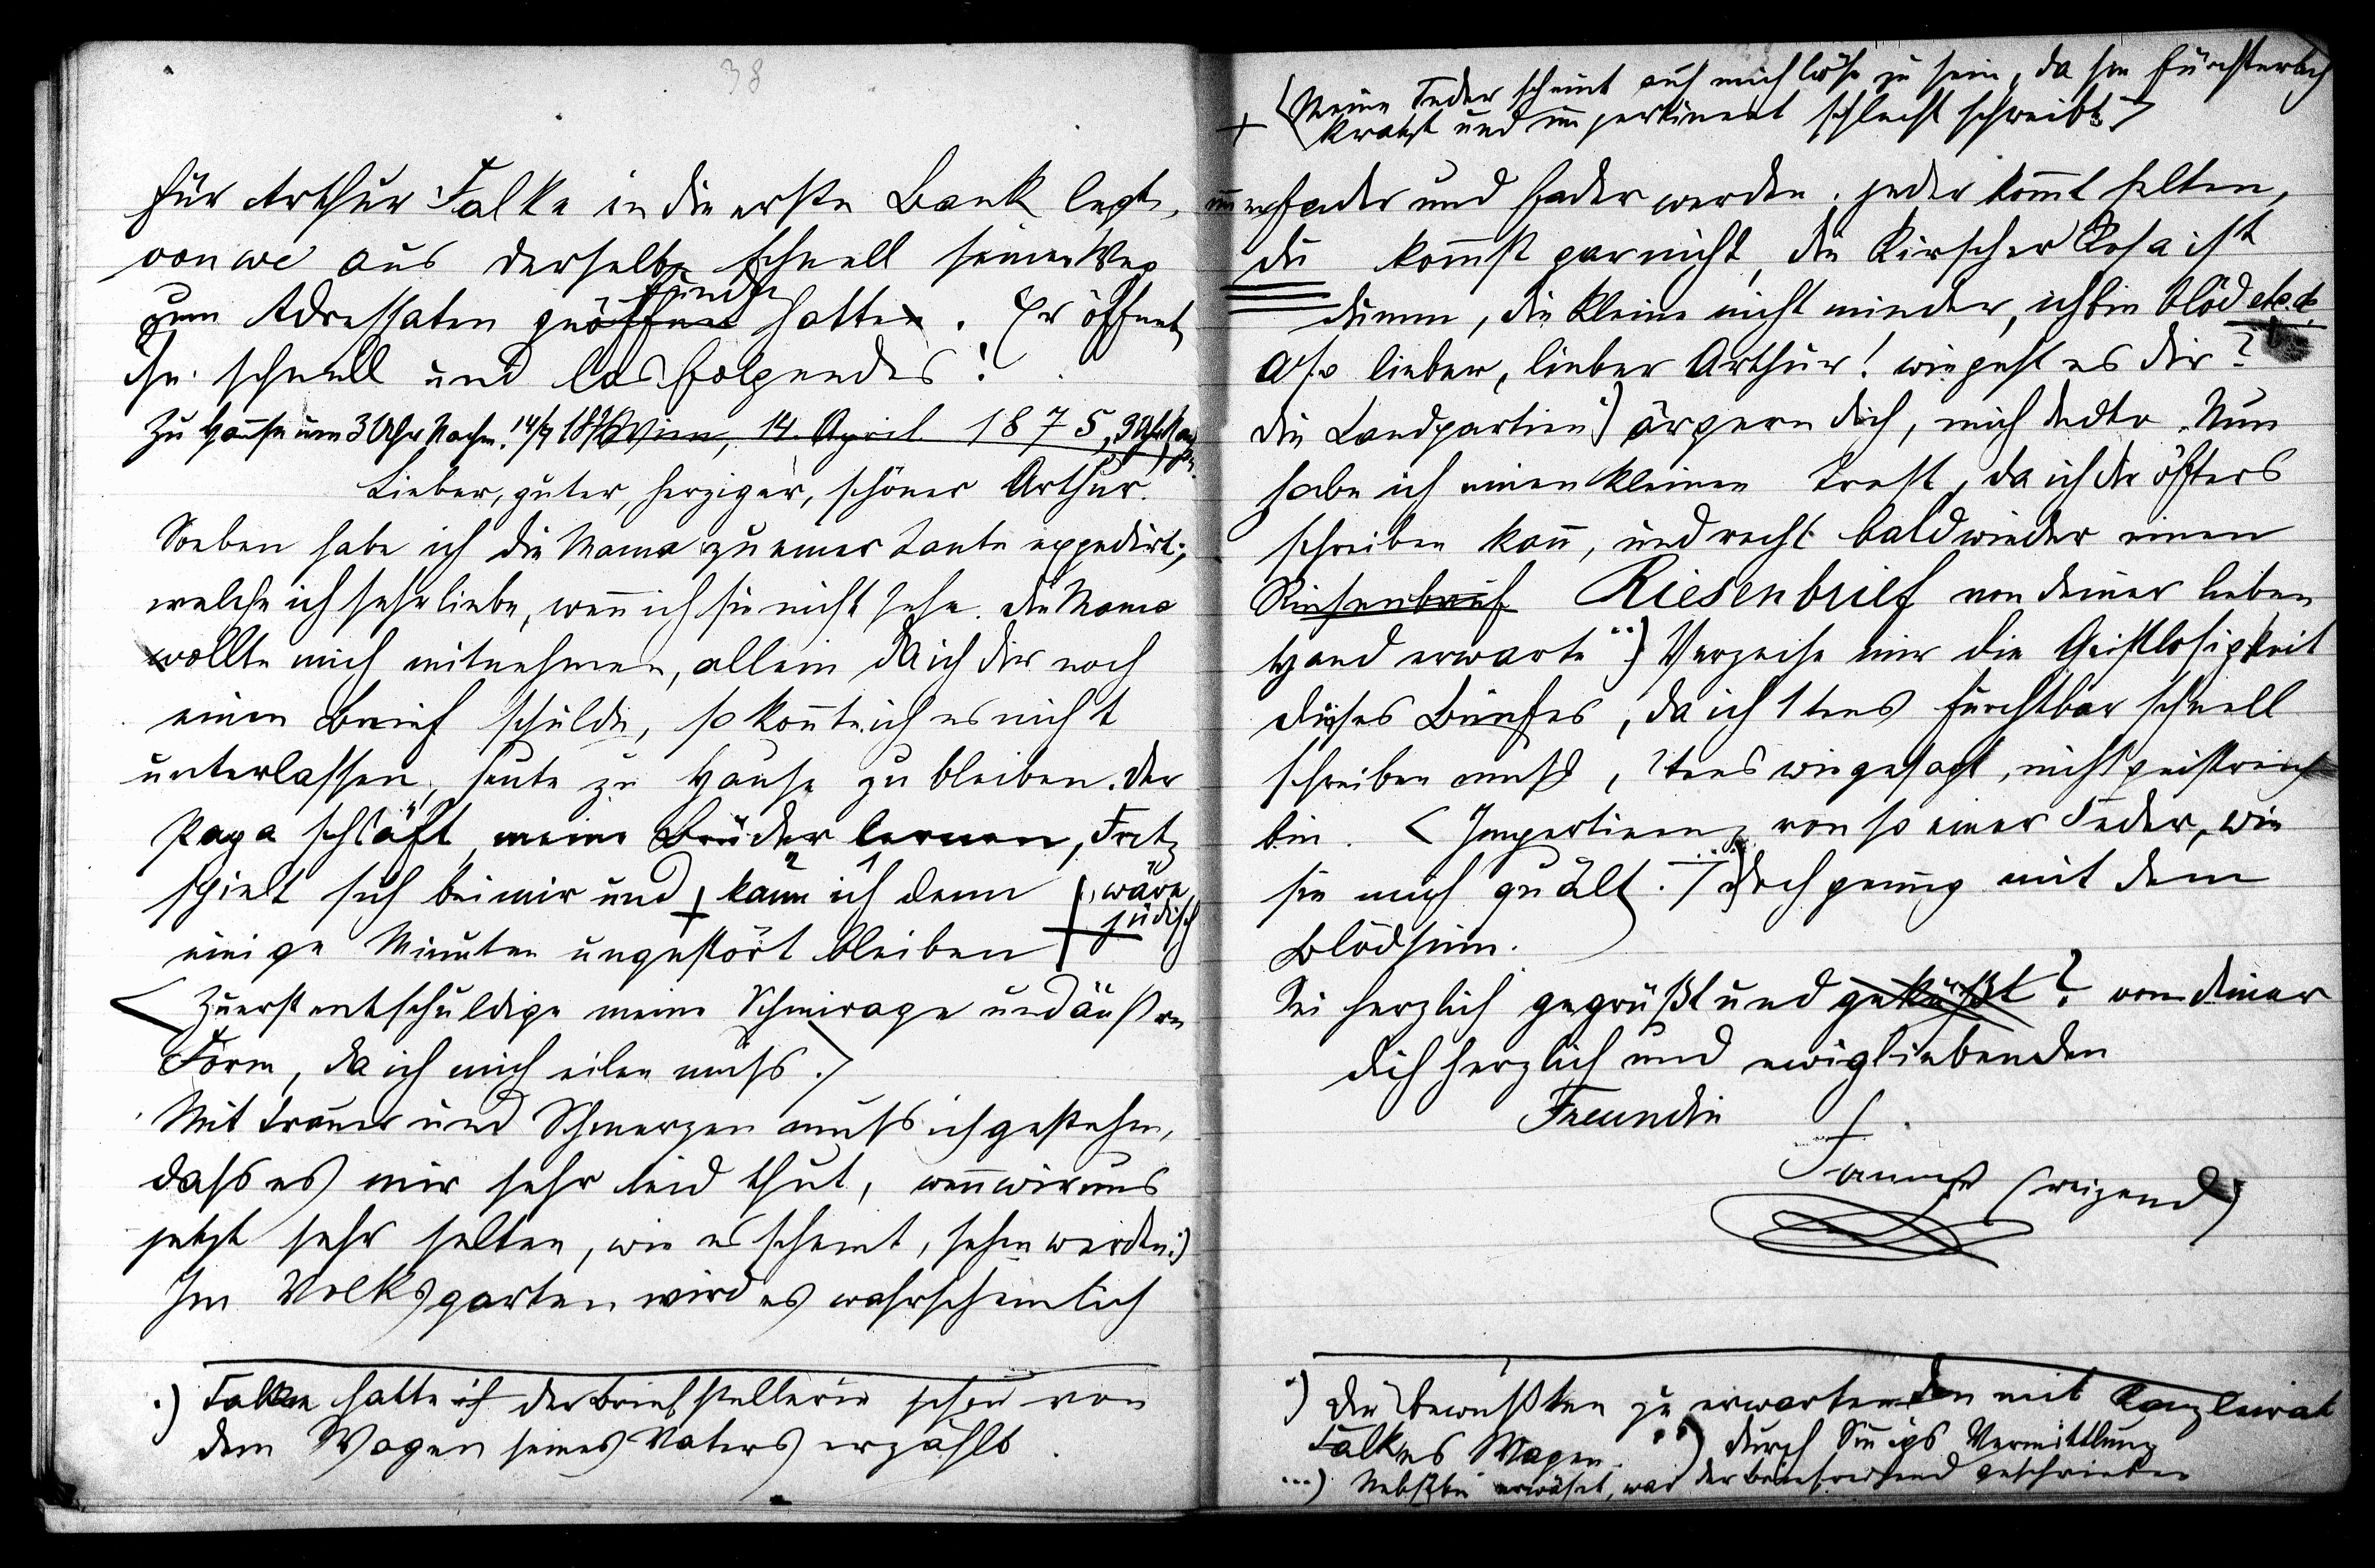 38
für Arthur Falke in die erste Bank legte,
von wo aus derselbe schnell seinen Weg
finden
zum Adressaten geöffnet hatte. Er öffnete
ihn schnell und las folgendes:
Zu Hause um 3 Uhr Nachm. 14/4 187 Wien, 14. April 1875, 3 Uhr
Lieber, guter, herziger, schöner Arthur.
Soeben habe ich die Mama zu einer Tante expedirt,
welche ich sehr liebe, wenn ich sie nicht sehe. Die Mama
wollte mich mitnehmen, allein da ich dir noch
einen Brief schulde, so konnte ich es nicht
unterlassen, heute zu Hause zu bleiben. Der
Papa schläft, meine Brüder lernen, Fritz
spielt sich bei mir und kann ich denn wäre
jüdisch
einige Minuten ungestört bleiben
< Zuerst entschuldige meine Schmirage und äußere
Form, da ich mich eilen muss. >
Mit Trauer und Schmerzen muss ich gestehen,
dass es mir sehr leid thut, wenn wir uns
jetzt sehr selten, wie es scheint, sehen werden.)
Im Volksgarten wird es wahrscheinlich
.) Falke hatte der Briefstellerin schon von
dem Wagen seines Vaters erzählt.
+ < Meine Feder scheint auf mich böse zu sein, da sie fürchterlich
kratzt und impertinent schlecht schreibt >
immer fader und fader werden. jeder kommt selten,
du kommst gar nicht, die Kirscher Rosa ist
dumm, die Kleine nicht minder, ich bin blöd etc. etc.
Also lieber, lieber Arthur! wie geht es dir?
die Landpartien .) ärgern dich, mich dedto. Nun
habe ich einen kleinen Trost, da ich dir öfters
schreiben kann, und recht bald wieder einen
Riesenbrief Riesenbrief von deiner lieben
Hand erwarte ..) Verzeihe mir die Geistlosigkeit
dieses Briefes, da ich 1tens furchtbar schnell
schreiben muss, 2tens wie gesagt, nicht geistreich
bin. < Impertinenz von so einer Feder, wie
sie mich quält. > ...) doch genug mit dem
Blödsinn.
Sei herzlich gegrüßt und geküßt? von deiner
dich herzlich und ewig liebenden
Freundin F.
Fanny (reizend)
.) Die bewußten zu erwartenden mit Kanzleirat
Falkes Wagen. ..) durch Vermittlung
...) Nebstbei erwähnt, war der Brief geschrieben